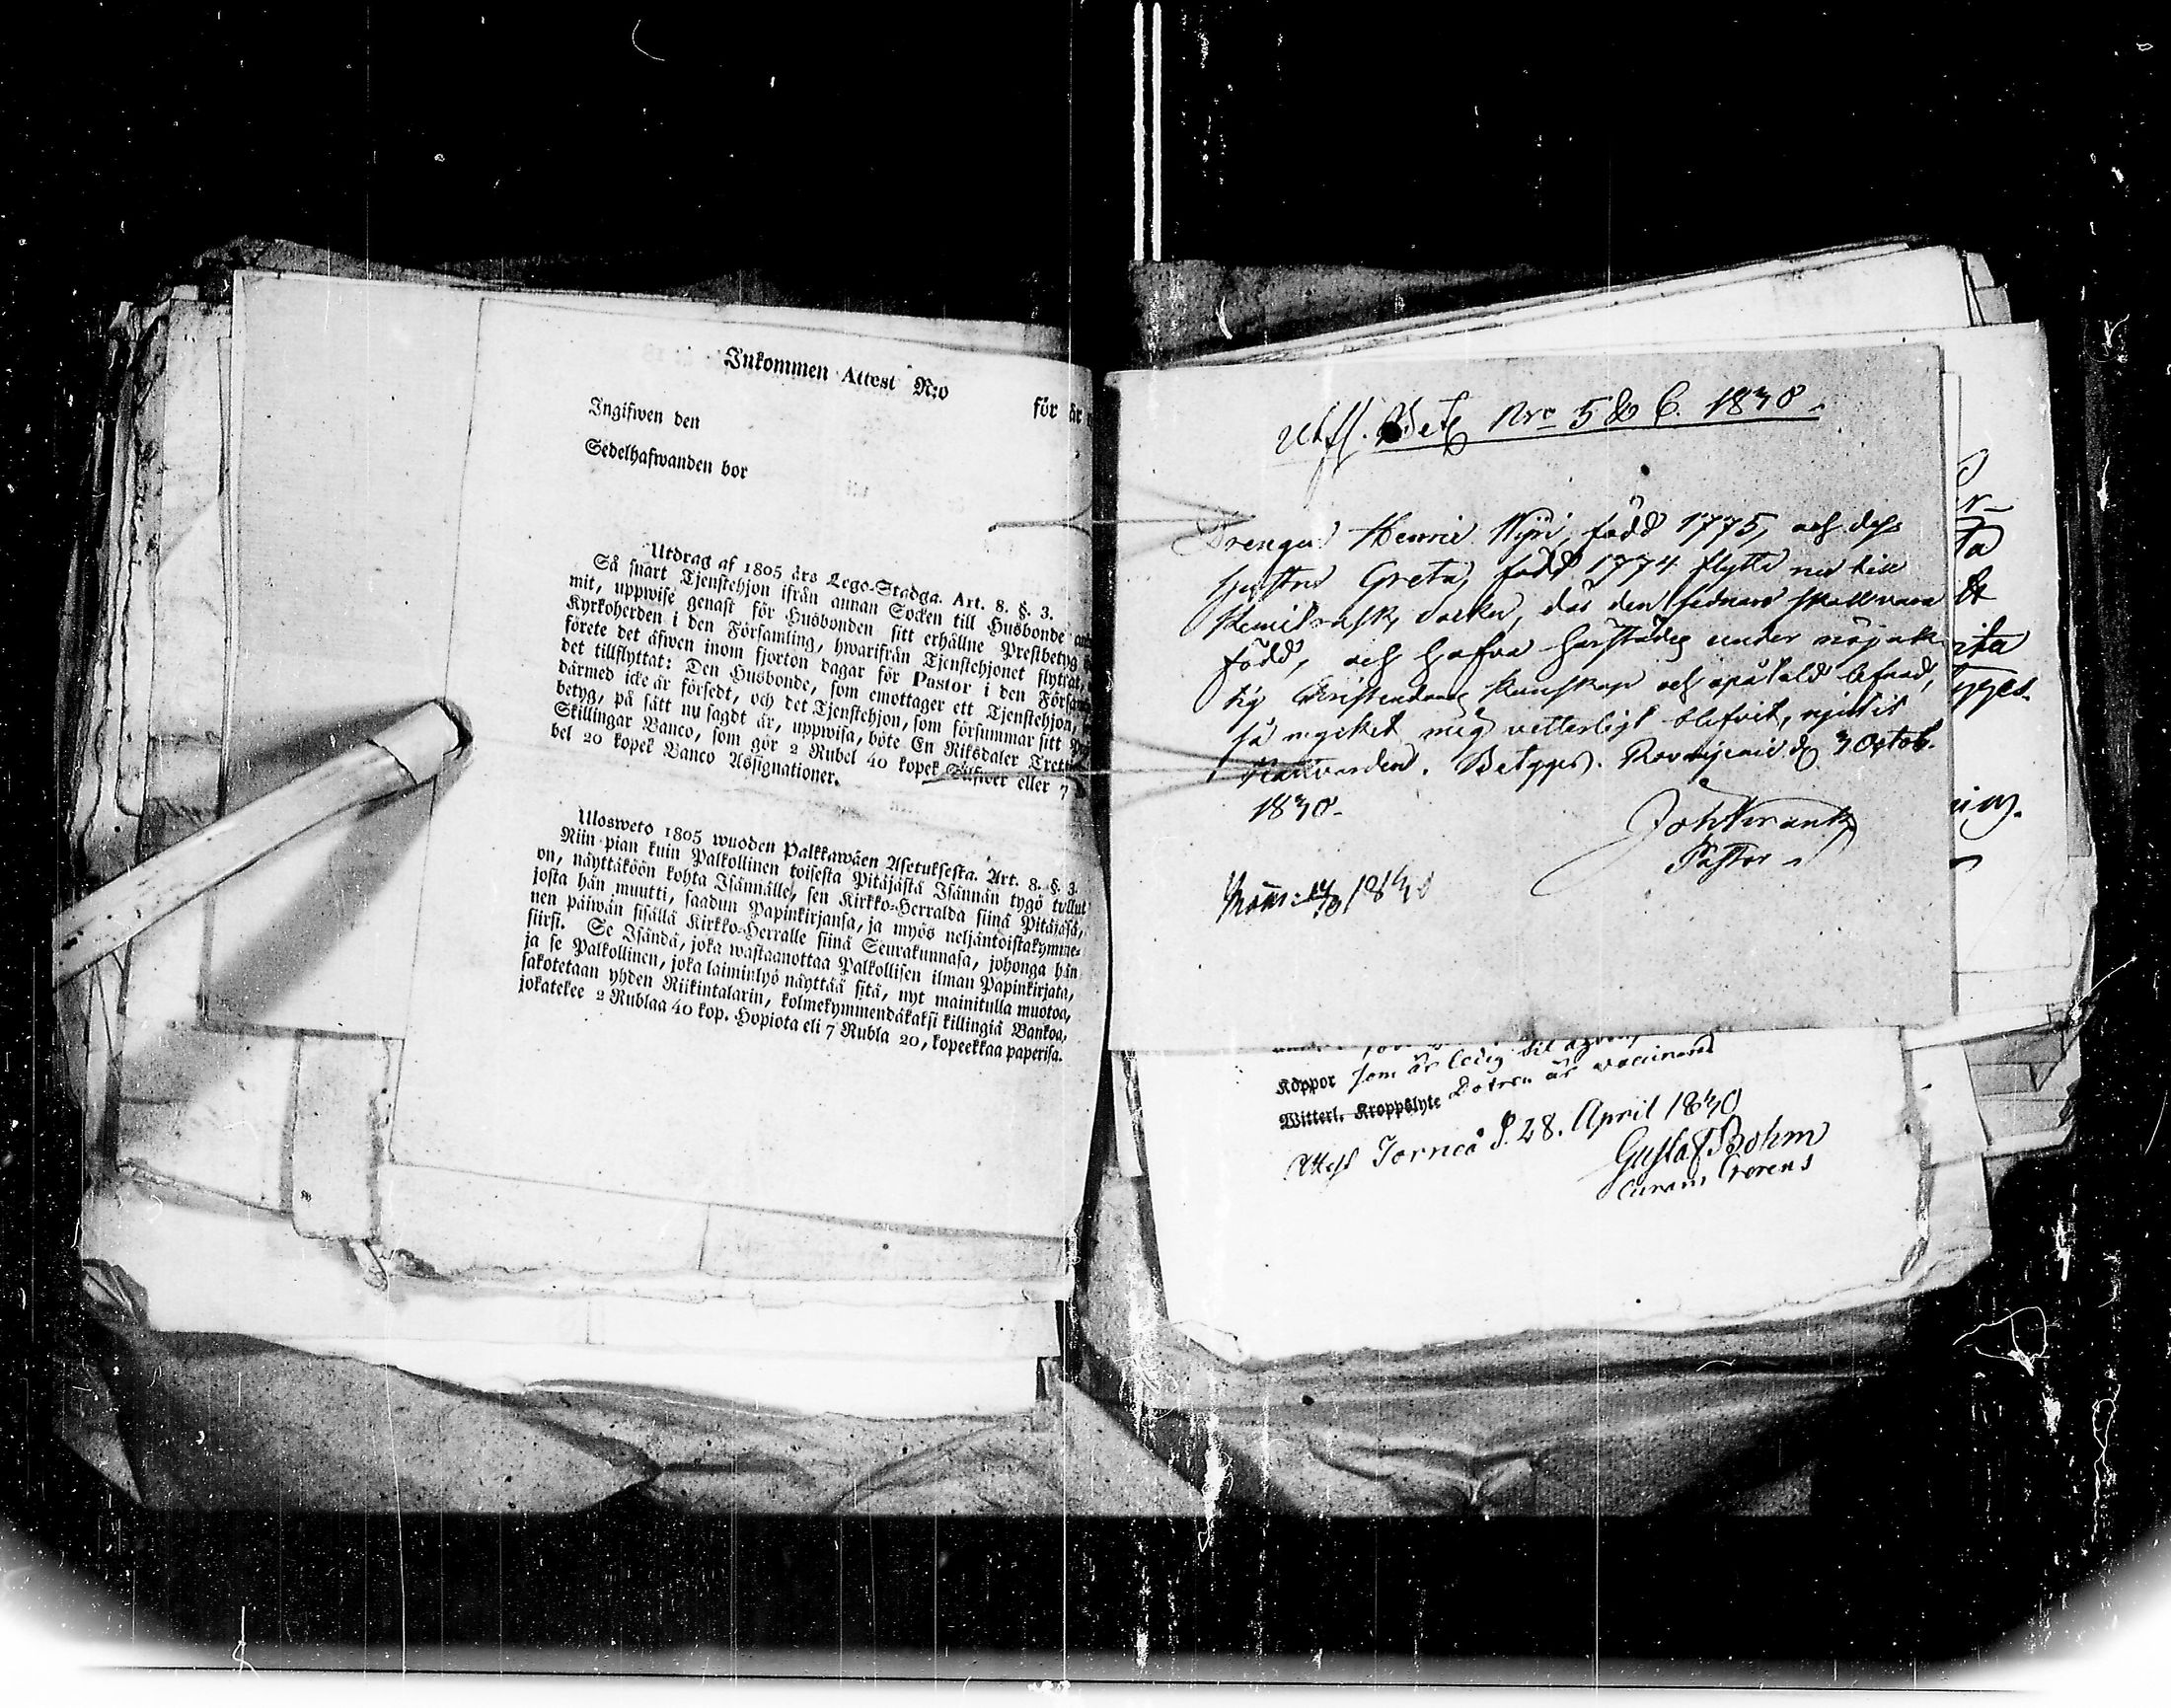 Inkommen Attest N:o
för år
Ingifwen den
Sedelhafwanden bor
Utdrag af 1805 års Lego-Stadga. Art. 8. §. 3.
Så snart Tjenstehjon ifrån annan Socken till Husbonde
mit, uppwise genast för Husbonden sitt erhållne Prestbetyg
Kyrkoherden i den Församling, hwarifrån Tjenstehjonet flyttat,
förete det äfwen inom fjorton dagar för Pastor i den Försam
det tillflyttat: Den Husbonde, som emottager ett Tjenstehjon,
därmed icke är försedt, och det Tjenstehjon, som försummar sitt
betyg, på sätt nu sagdt är, uppwisa, böte En Riksdaler Trett
Skillingar Banco, som gör 2 Rubel 40 kopek Silfwer eller 7
bel 20 kopek Banco Assignationer.
Ulosweto 1805 wuoden Palkkawäen Asetuksesta. Art. 8. §. 3.
Niin pian kuin Palkollinen toisesta Pitäjästä Isännän tygö tullut
on, näyttäköön kohta Isännälle, sen Kirkko-Herralda siinä Pitäjäsä,
josta hän muutti, saadun Papinkirjansa, ja myös neljäntoistakymme-
nen päiwän sisällä Kirkko-Herralle siinä Seurakunnasa, johonga hän
siirsi. Se Isändä, joka wastaanottaa Palkollisen ilman Papinkirjata,
ja se Palkollinen, joka laiminlyö näyttää sitä, nyt mainitulla muotoa,
sakotetaan yhden Riikintalarin, kolmekymmendäkaksi killingiä Bankoa,
jokatekee 2 Rublaa 40 kop. Hopiota eli 7 Rubla 20, kopeekkaa paperisa.
Utfl. Bet Nro 5 & 6. 1830.
Drengen Henric Nyri, född 1775, och dess
hustru Greta, född 1774 flytta nu till
Kemiträsk socken, där den sednare skall vara
född, och hafva härstädes under nöjak
tig Christendoms kunskap och opåtald lefnad,
så mycket mig vetterligt blifvit, njutit
Nattvarden. Betygas. Rovaniemi d. 3 Octob.
1830.
Joh Wvank
Pastor
1830
Koppor som är ledig til
Witterl. Kroppslyte Dotren är vaccinerad
Attest Torneå d. 28. April 1830
Gustaf Bohm
Curam Gerens